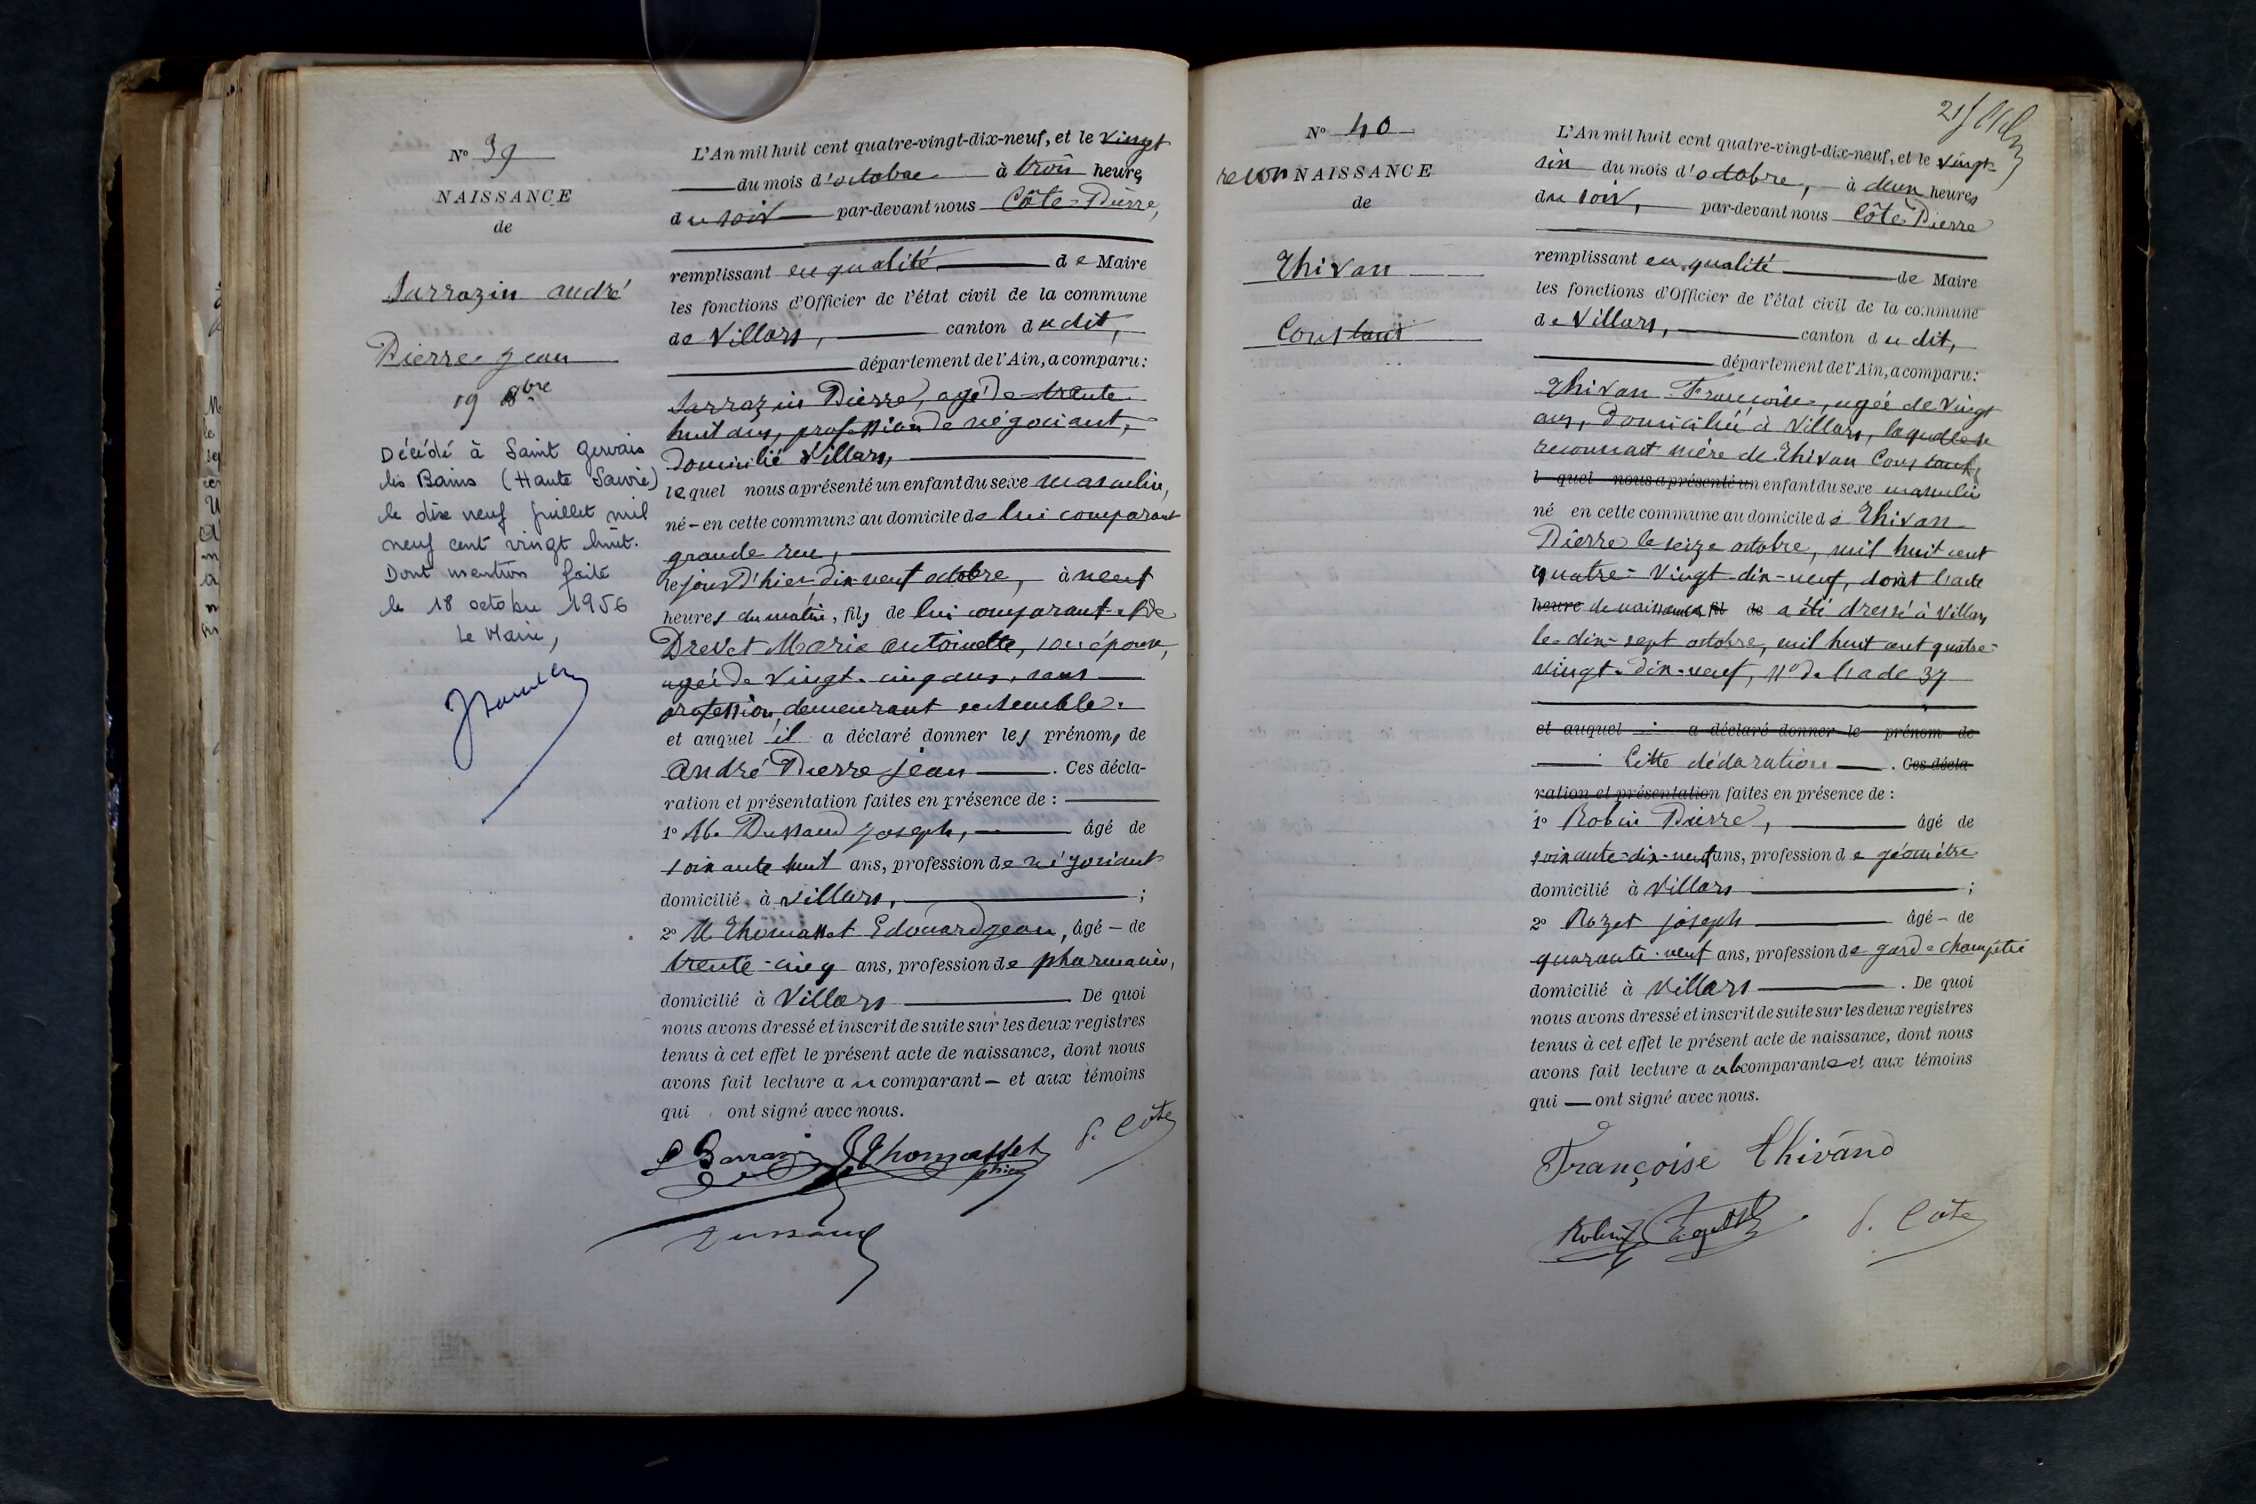 N° 39
NAISSANCE
de
Sarrazin André
Pierre Jean
19 8bre
Décédé à Saint Gervais
les Bains (Haute Savoie)
le dix neuf juillet mil
neuf cent vingt huit.
Dont mention faite
le 18 octobre 1956
Le Maire,
L'An mil huit cent quatre-vingt-dix-neuf, et le vingt
du mois d'octobre à trois heures
du soir par-devant nous Côte-Pierre,
remplissant en qualité de Maire
les fonctions d'Officier de l'état civil de la commune
de Villars, canton dudit,
département de l'Ain, a comparu :
Sarrazin Pierre, agé de trente
huit ans, profession de négociant,
domicilié Villars,
lequel nous a présenté un enfant du sexe masculin,
né - en cette commune au domicile de lui comparant
grande rue,
le jour d'hier dix neuf octobre, à neuf
heures du matin, fils de lui comparant et de
Drevet Marie Antoinette, son épouse,
agée de vingt-cinq ans, sans
profession, demeurant ensemble.
et auquel il a déclaré donner les prénoms de
André Pierre Jean. Ces décla-
ration et présentation faites en présence de :
1° M. Dussaud Joseph, âgé de
soixante huit ans, profession de négociant
domicilié à Villars, ;
2° M. Thomasset Edouard Jean, âgé - de
trente-cinq ans, profession de pharmacien,
domicilié à Villars De quoi
nous avons dressé et inscrit de suite sur les deux registres
tenus à cet effet le présent acte de naissance, dont nous
avons fait lecture au comparant - et aux témoins
qui ont signé avec nous.
P Sarrazin Thomasset P. Côte
phien
Dussaud
N° 40
recon NAISSANCE
de
Thivan
Constant
L'An mil huit cent quatre-vingt-dix-neuf, et le vingt-
six du mois d'octobre, à deux heures
du soir, par-devant nous Côte-Pierre
remplissant en qualité de Maire
les fonctions d'Officier de l'état civil de la commune
de Villars, canton dudit,
département de l'Ain, a comparu :
Thivan Françoise, agée de vingt
ans, domiciliée à Villars, laquelle se
reconnait mère de Thivan Constant,
l quel nous a présenté un enfant du sexe masculin
né en cette commune au domicile de Thivan
Pierre le seize octobre, mil huit cent
quatre-vingt-dix-neuf, dont l'acte
heure de naissance fil de a été dressé à Villars
le dix-sept octobre, mil huit cent quatre-
vingt-dix-neuf, N° de l'acte 37
et auquel a déclaré donner le prénom de
Cette déclaration. Ces décla-
ration et présentation faites en présence de :
1° Robin Pierre, âgé de
soixante-dix-neuf ans, profession de géomètre
domicilié à Villars ;
2° Rozet Joseph âgé - de
quarante-neuf ans, profession de garde champêtre
domicilié à Villars. De quoi
nous avons dressé et inscrit de suite sur les deux registres
tenus à cet effet le présent acte de naissance, dont nous
avons fait lecture a la comparante et aux témoins
qui ont signé avec nous.
Françoise Thivand
Robin P. Côte